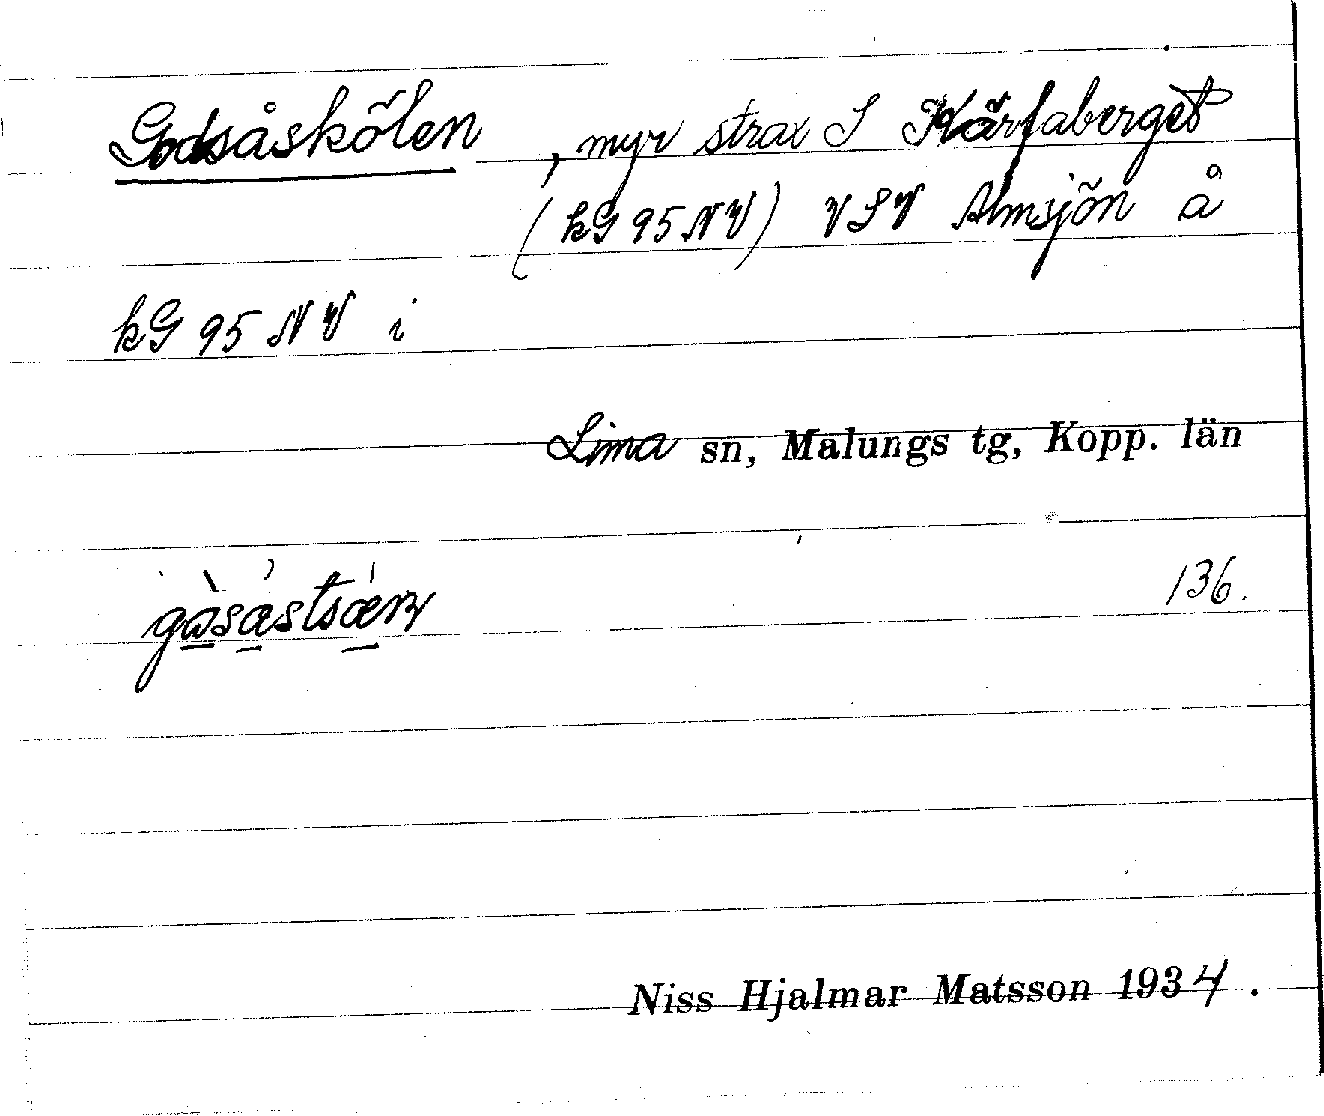 Godsåskölen, myr strax S Kärfaberget
(kG 95 NV) VSV Almsjön å
kG 95 NV i
Lima sn, Malungs tg, Kopp. län
136.
Niss Hjalmar Matsson 1934.